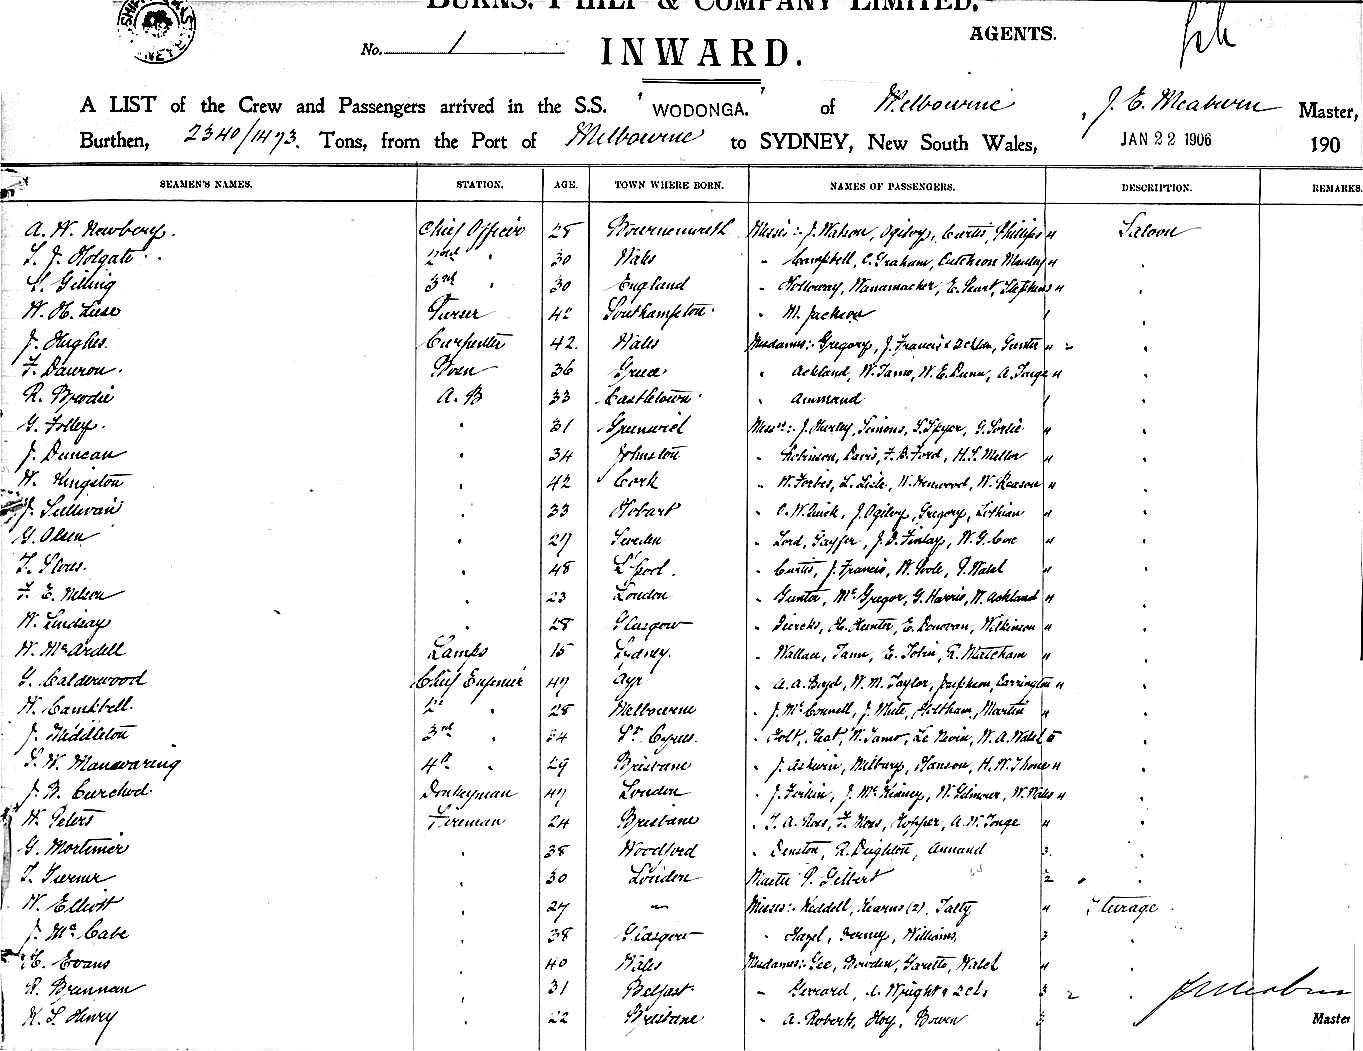 BURNS, PHILP & COMPANY LIMITED,
AGENTS.
No. 1
INWARD.
A LIST of the Crew and Passengers arrived in the S.S. "WODONGA." of Melbourne, J. E. Meaburn Master,
Burthen, 2340/1473. Tons, from the Port of Melbourne to SYDNEY, New South Wales, JAN 22 1906 190
SEAMEN'S NAMES. STATION. AGE. TOWN WHERE BORN. NAMES OF PASSENGERS. DESCRIPTION. REMARKS.
A. W. Newbery. Chief Officer 28 Bournemouth Misses:- J. Watson, Ogilvy, Curtis, Phillips 4 Saloon
T. J. Holgate. 2nd " 30 Wales " Campbell, C. Graham, Cutcheon Manley 4 "
Gilling 3rd " 30 England " Holloway, Wanamacher, E. Hart, Stephens 4 "
W. H. Luse Purser 42 Southampton " M. Jackson 1 "
J. Hughes. Carpenter 42. Wales Mesdames:- Gregory, J. Francis & 2 chldn, Gunter 4 2 "
F. Dauron. Bosn 36 Greece " Ackland, W. Tamo, W. E. Dunn, A. Tonge 4 "
R. Brodie A.B 33 Castletown " Ammand 1 "
G. Folley. " 31 Greenwich Messrs:- J. Hurley, Simons, S. Spyer, G. Sorlie 4 "
J. Duncan " 34 Johnston " Robinson, Davis, F. B. Ford, H. S. Mellor 4 "
W. Kingston " 42 Cork " W. Forbes, L. Lisle, W. Henwood, W. Reason 4 "
J. Sullivan " 33 Hobart " C. W. Quick, J. Ogilvy, Gregory, Lothian 4 "
G. Olsen " 27 Sweden " Lord, Gayfer, J. D. Finlay, W. G. Coe 4 "
T. " 48 L'pool. " Curtis, J. Francis, W. Poole, P. Walsh 4 "
F. E. Nelson " 23 London " Gunter, McGregor, G. Harris, W. Ackland 4 "
W. Lindsay " 28 Glasgow " H. Hunter, E. Donovan, Wilkinson 4 "
W. McArdell Lamps 15 Sydney. " Wallace, Tann, E. Tobin, R. Matcham 4 "
G. Calderwood Chief Engineer 47 Ayr " A. A. Boyd, W. M. Taylor, Josephson, Carrington 4 "
W. Campbell. 2nd " 28 Melbourne " J. McConnell, J. White, Feltham, Martin 4 "
J. Middleton 3rd " 34 St Cyrus. " Holt, Heat, W. Tamo, Le Nevin, W. A. Walsh 5 "
S. W. Manwaring 4th " 29 Brisbane " J. Askwin, Milbury, Hanson, H. W. Thone 4 "
J. B. Curchod. Donkeyman 47 London " J. Forkin, J. McKinney, W. Gilmour, W. Wales 4 "
W. Peters Fireman 24 Brisbane " T. A. Ross, F. Ross, Hopper, A. W. Tonge 4 "
G. Mortimer " 38 Woodford " Denston, R. Deighton, Annand 3. "
T. Turner " 30 London Master P. Gilbert 2 " "
W. Elliott " 27 " Misses:- Riddell, Kearns (2), Talty 4 Steerage
J. McCabe " 38 Glasgow " Hazel, Williams, 3 "
H. Evans " 40 Wales Mesdames:- Gee, Bowden, Garetto, Walsh 4 "
R. Brennan " 31 Belfast " Gerrard, A. Wright & 2 ch. 3 2 " J. E. Meaburn
H. S. Henry " 22 Brisbane " A. Roberts, Hoy, Bowen 3 " Master